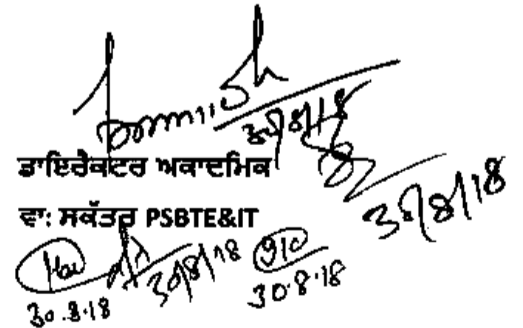 30/8/18
ਡਾਇਰੈਕਟਰ ਅਕਾਦਮਿਕ
ਵਾ: ਸਕੱਤਰ PSBTE&IT
30/8/18
30/8/18
30.8.18
30.8.18